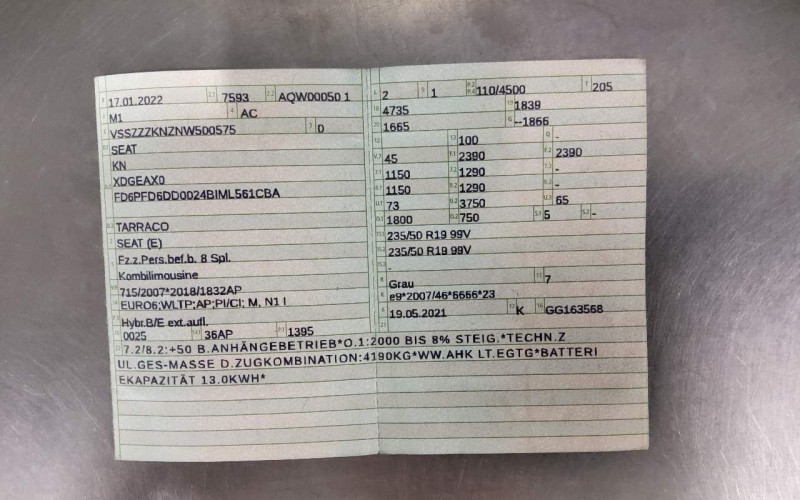 17.01.2022 7593 AQW00050 1
M1 AC
VSSZZZKNZNW500575 0
SEAT
KN
XDGEAX0
FD6PFD6DD0024BIML561CBA
TARRACO
SEAT (E)
Fz.z.Pers.bef.b. 8 Spl.
Kombilimousine
715/2007*2018/1832AP
EURO6;WLTP;AP;PI/CI; M, N1 I
Hybr.B/E ext.aufl.
0025 36AP 1395
2 1 110/4500 205
4735 1839
1665 --1866
100 -
45 2390 2390
1150 1290 -
1150 1290 -
73 3750 65
1800 750 5 -
235/50 R19 99V
235/50 R19 99V
-
Grau 7
e9*2007/46*6666*23
19.05.2021 K GG163568
7.2/8.2:+50 B.ANHÄNGEBETRIEB*O.1:2000 BIS 8% STEIG.*TECHN.Z
UL.GES-MASSE D.ZUGKOMBINATION:4190KG*WW.AHK LT.EGTG*BATTERI
EKAPAZITÄT 13.0KWH*